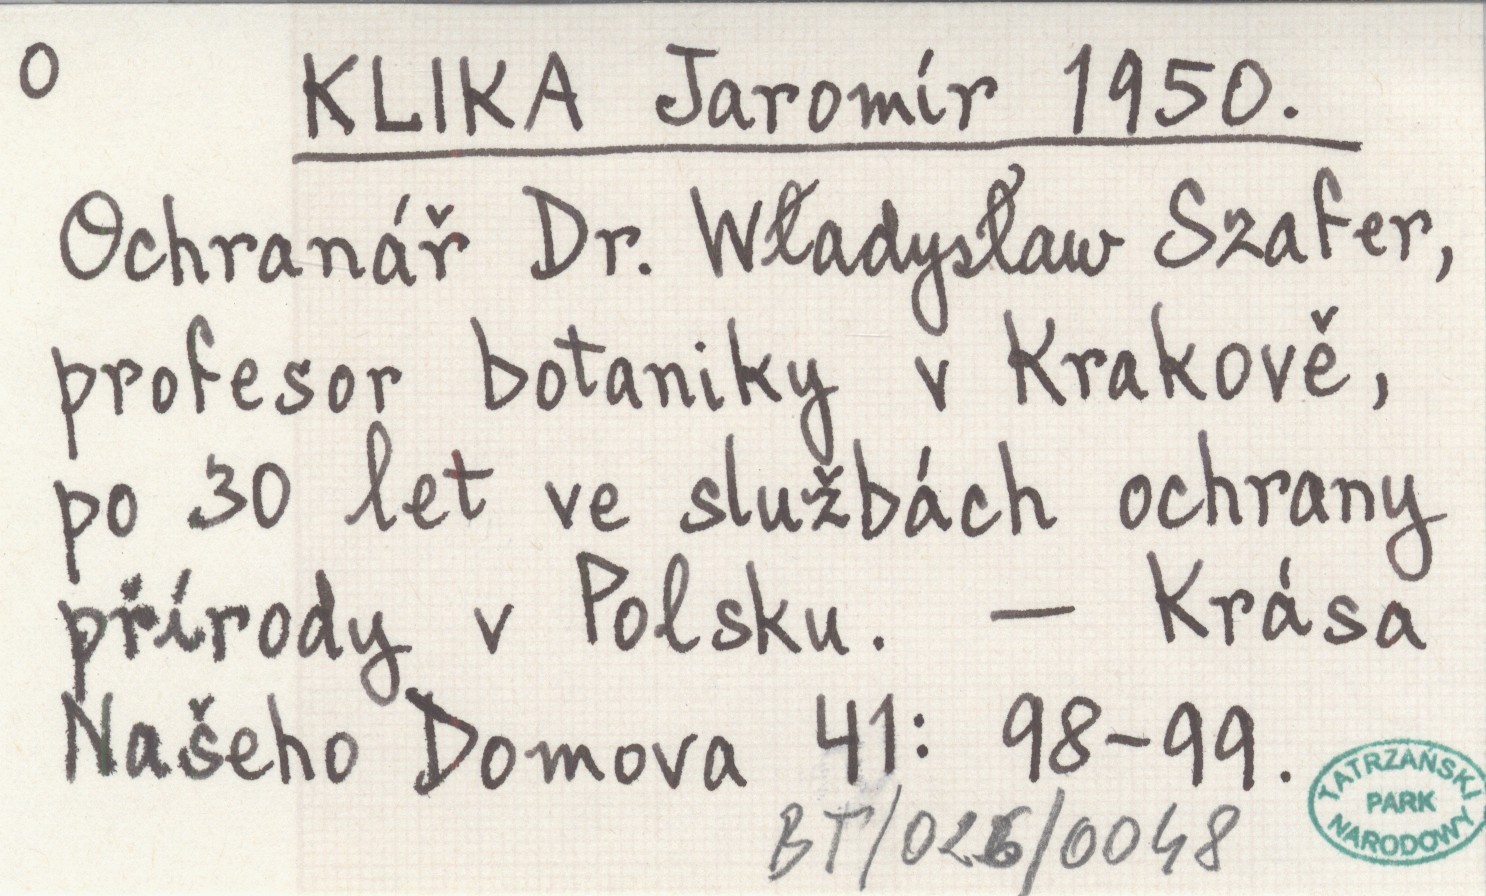 O
KLIKA Jaromír 1950.
Ochranář Dr. Władysław Szafer,
profesor botaniky v Krakově,
po 30 let ve službách ochrany
přírody v Polsku. — Krása
Našeho Domova 41: 98-99.
BT/026/0048
TATRZAŃSKI
PARK
NARODOWY